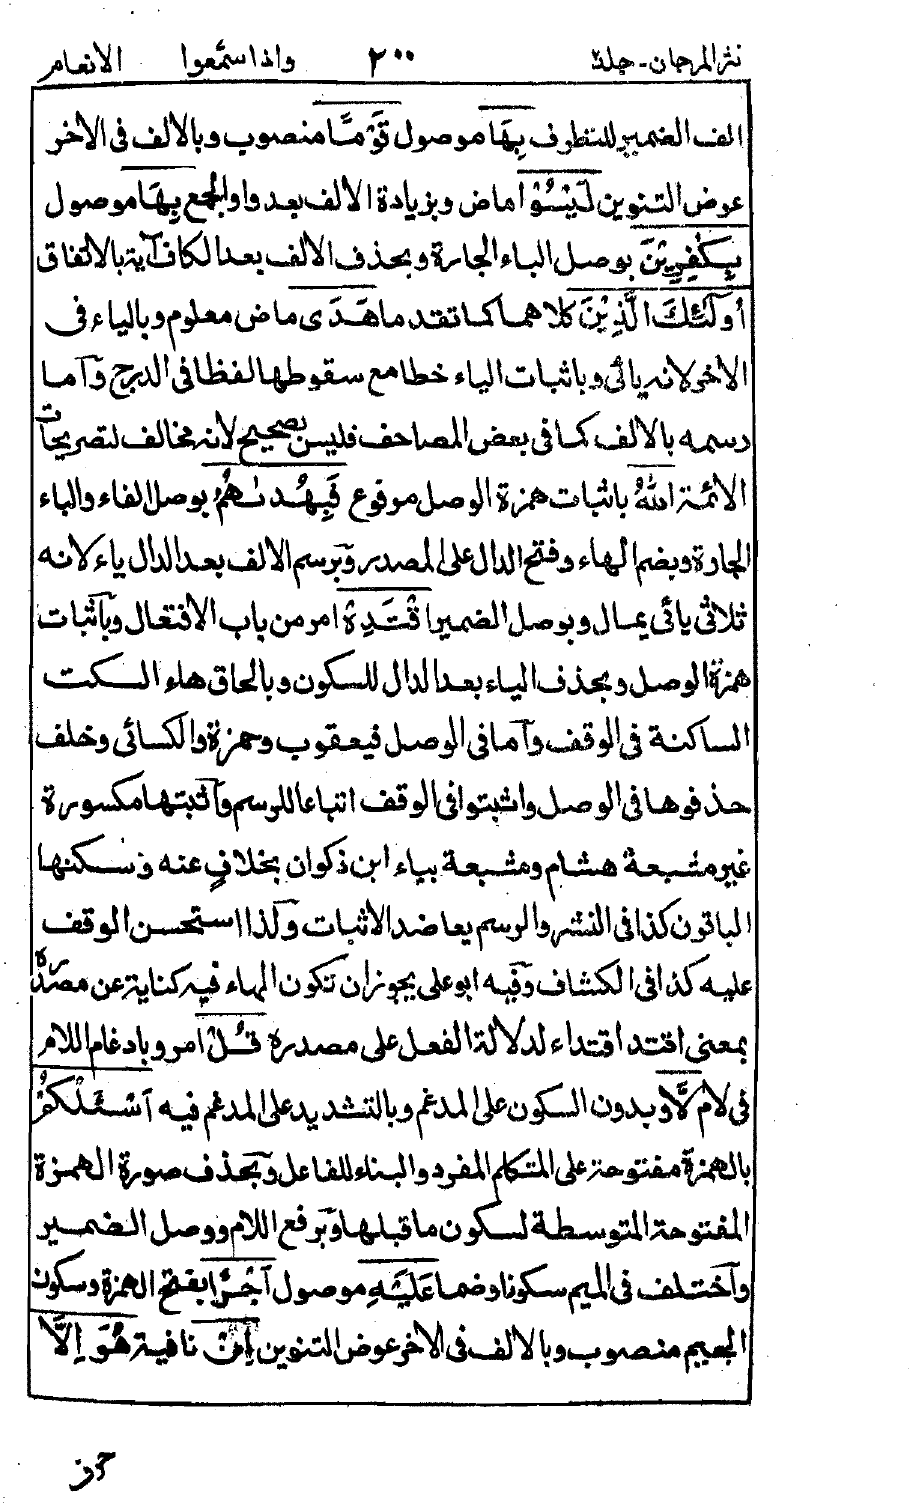 نثر المرجان - جلد ٢ ٢٠٠ واذا سمعوا الانعام
الف الضمير للتطرف بِهَا موصول قَوْمًا منصوب وبالالف فى الاخر
عوض التنوين لَيْسُوْا ماض وبزيادة الالف بعد واو الجمع بِهَا موصول
بِكٰفِرِيْنَ بوصل الباء الجارة وبحذف الالف بعد الكاف آية بالاتفاق
اُولٰئِكَ الَّذِيْنَ كلاهما كما تقدما هَدَى ماض معلوم وبالياء فى
الاخر لانه يائى وباثبات الياء خطا مع سقوطها لفظا فى الدرج وآما
رسمه بالالف كما فى بعض المصاحف فليس بصحيح لانه مخالف لتصريحات
الائمة اللهُ باثبات همزة الوصل مرفوع فَبِهُدٰىهُمُ بوصل الفاء والباء
الجارة وبضم الهاء وفتح الدال على المصدر وبرسم الالف بعد الدال ياء لانه
ثلاثى يائى يمال وبوصل الضمير اقْتَدِهْ امر من باب الافتعال وباثبات
همزة الوصل وبحذف الياء بعد الدال للسكون وبالحاق هاء السكت
الساكنة فى الوقف وآما فى الوصل فيعقوب وحمزة والكسائى وخلف
حذفوها فى الوصل واثبتوا فى الوقف اتباعا للرسم وآثبتها مكسورة
غير مشبعة هشام ومشبعة بياء ابن ذكوان بخلاف عنه وسكنها
الباقون كذا فى النشر والرسم يعاضد الاثبات ولذا استحسن الوقف
عليه كذا فى الكشاف وفيه ابو على يجوز ان تكون الهاء فيه كناية عن مصدره
بمعنى اقتد اقتداء لدلالة الفعل على مصدره قُلْ امر وبادغام اللام
فى لام لَّا وبدون السكون على المدغم وبالتشديد على المدغم فيه اَسْـَٔلُكُمْ
بالهمزة مفتوحة على المتكلم المفرد والبناء للفاعل وبحذف صورة الهمزة
المفتوحة المتوسطة لسكون ما قبلها وبرفع اللام ووصل الضمير
وآختلف فى الميم سكونا وضما عَلَيْهِ موصول اَجْرًا بفتح الهمزة وسكون
الجيم منصوب وبالالف فى الاخر عوض التنوين اِنْ نافية هُوَ اِلَّا